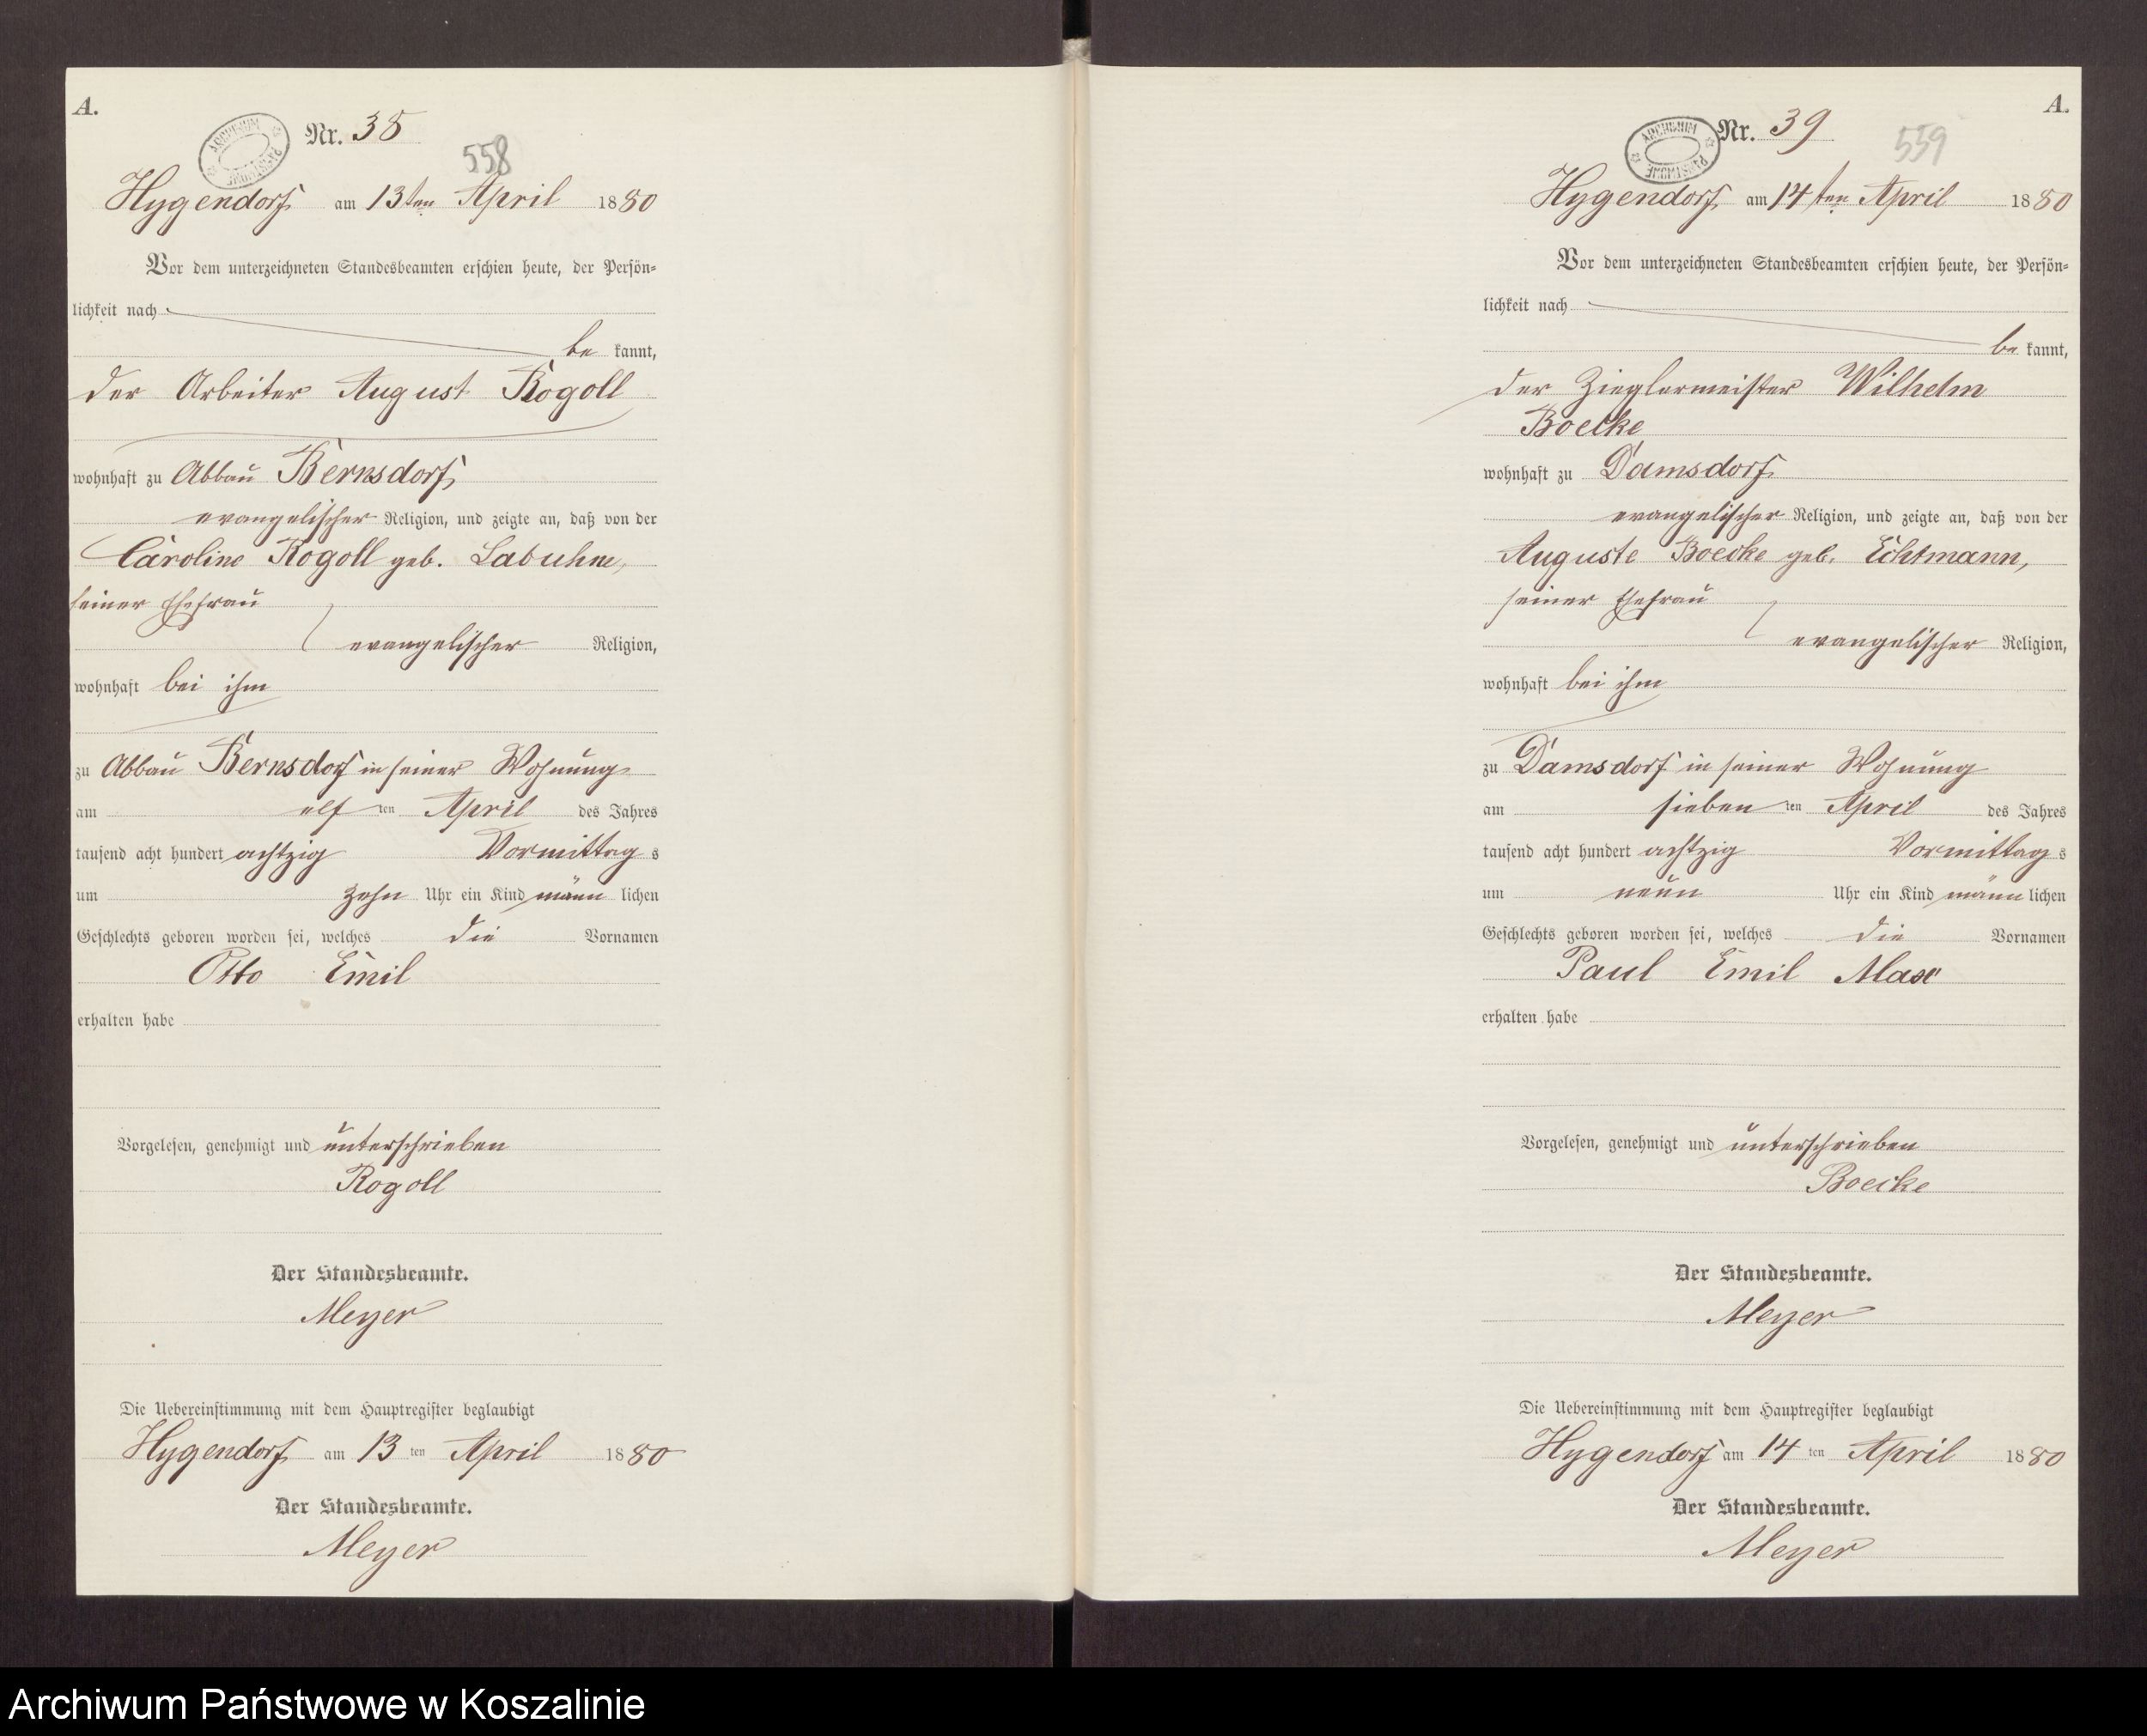 A.
Nr. 38
558
Hygendorf am 13ten April 1880
Vor dem unterzeichneten Standesbeamten erschien heute, der Persön=
lichkeit nach
be kannt,
der Arbeiter August Rogoll
wohnhaft zu Abbau Bernsdorf
evangelischer Religion, und zeigte an, daß von der
Caroline Rogoll geb. Labuhne,
seiner Ehefrau
evangelischer Religion,
wohnhaft bei ihm
zu Abbau Bernsdorf in seiner Wohnung
am elf ten April des Jahres
tausend acht hundert achtzig Vormittag s
um zehn Uhr ein Kind männ lichen
Geschlechts geboren worden sei, welches die Vornamen
Otto Emil
erhalten habe
Vorgelesen, genehmigt und unterschrieben
Rogoll
Der Standesbeamte.
Meyer
Die Uebereinstimmung mit dem Hauptregister beglaubigt
Hygendorf am 13 ten April 1880
Der Standesbeamte.
Meyer
A.
ARCHIWUM PAŃSTWOWE
Nr. 39
559
Hygendorf am 14ten April 1880
Vor dem unterzeichneten Standesbeamten erschien heute, der Persön=
lichkeit nach
be kannt,
der Zieglermeister Wilhelm
Boecke
wohnhaft zu Damsdorf
evangelischer Religion, und zeigte an, daß von der
Auguste Boecke geb. Echtmann,
seiner Ehefrau
evangelischer Religion,
wohnhaft bei ihm
zu Damsdorf in seiner Wohnung
am sieben ten April des Jahres
tausend acht hundert achtzig Vormittag s
um neun Uhr ein Kind männ lichen
Geschlechts geboren worden sei, welches die Vornamen
Paul Emil Max
erhalten habe
Vorgelesen, genehmigt und unterschrieben
Boecke
Der Standesbeamte.
Meyer
Die Uebereinstimmung mit dem Hauptregister beglaubigt
Hygendorf am 14 ten April 1880
Der Standesbeamte.
Meyer
Archiwum Państwowe w Koszalinie